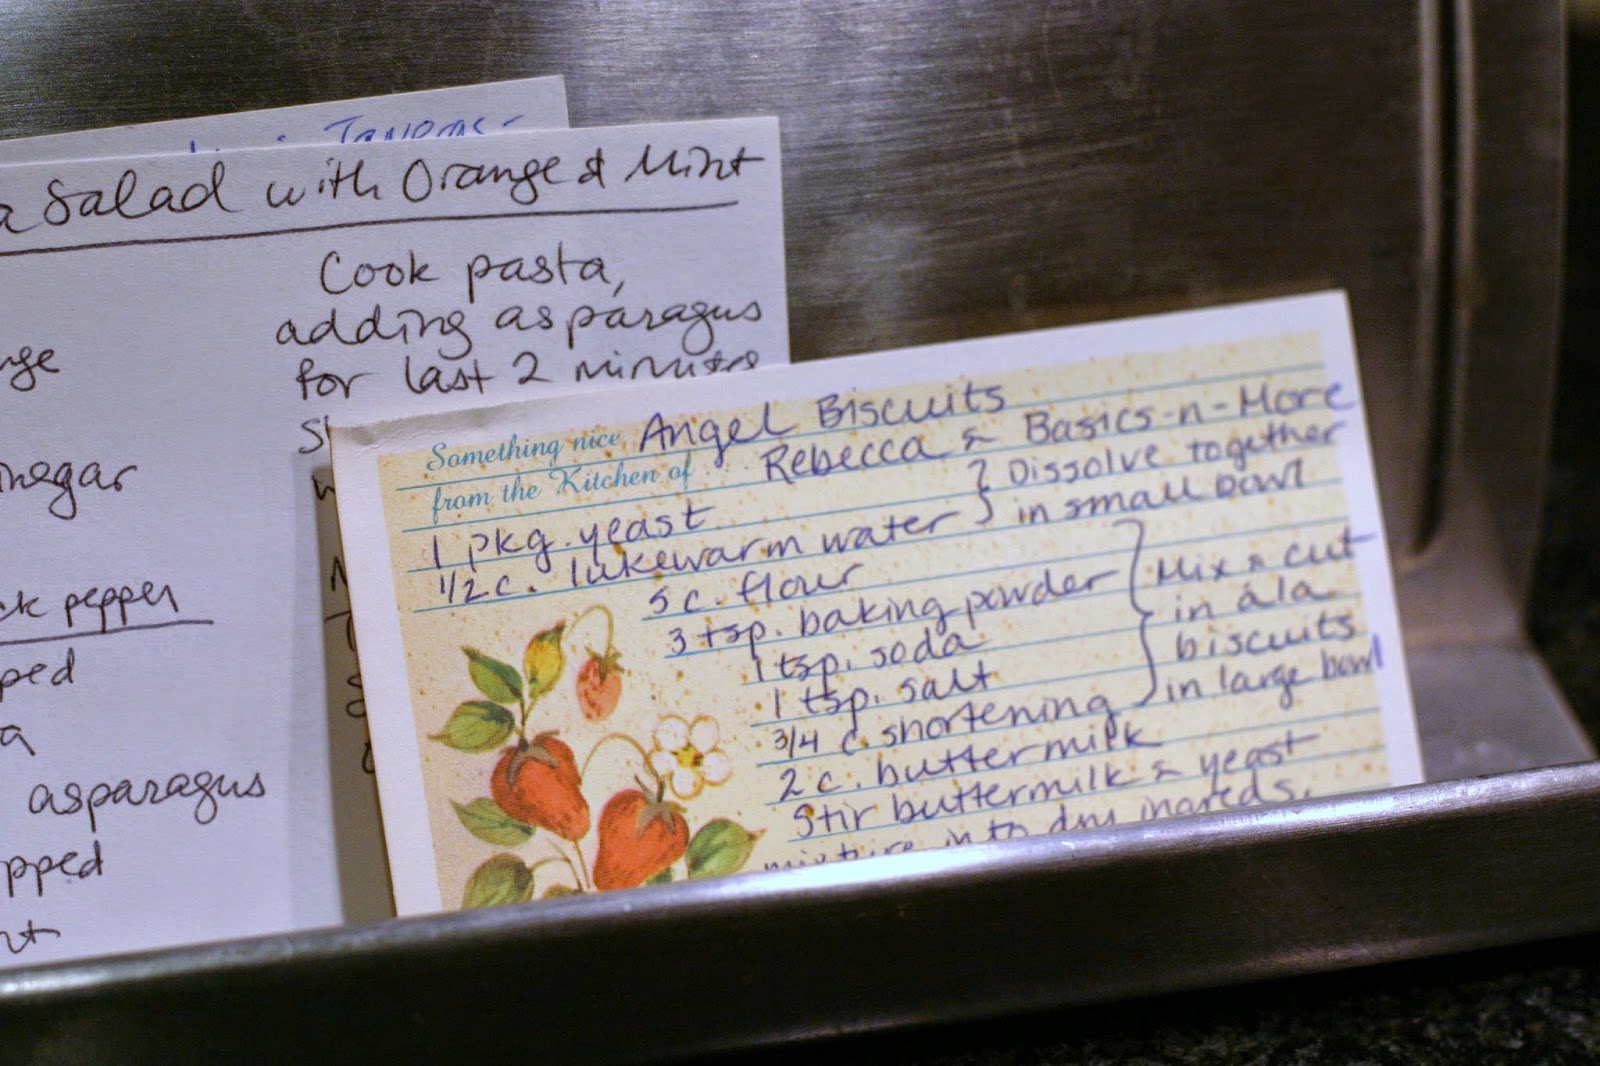 a Salad with Orange & Mint
Cook pasta,
adding asparagus
for last 2 minutes
nge
inegar
ck pepper
ped
a
asparagus
pped
nt
Something nice Angel Biscuits
from the Kitchen of .... Rebecca & Basics-n-More
1 pkg. yeast } Dissolve together
1/2 c. lukewarm water in small bowl
5 c. flour
3 tsp. baking powder } Mix & cut
1 tsp. soda in á la
1 tsp. salt biscuits
3/4 c. shortening in large bowl
2 c. buttermilk
Stir buttermilk & yeast
mixture into dry ingreds.